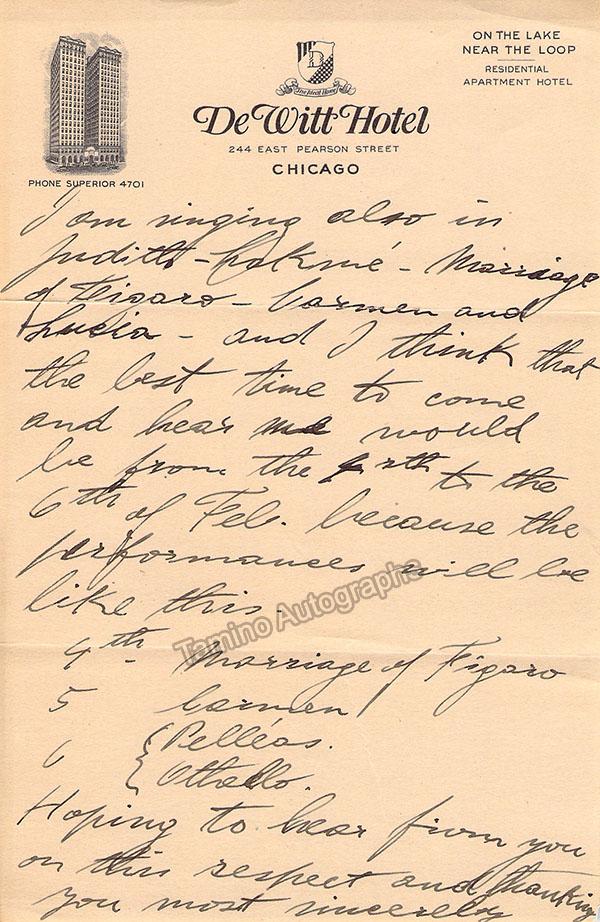 ON THE LAKE
NEAR THE LOOP
RESIDENTIAL
APARTMENT HOTEL
D
The Ideal Home
De Witt Hotel
244 EAST PEARSON STREET
CHICAGO
PHONE SUPERIOR 4701
I am singing also in
Judith - Lakmé - Marriage
of Figaro - Carmen and
Lucia - and I think that
the best time to come
and hear me would
be from the 4th to the
6th of Feb. because the
performances will be
like this -
Tamino Autographs
4th - Marriage of Figaro
5 Carmen
6 { Pelléas.
Othello.
Hoping to hear from you
on this respect and thanking
you most sincerely